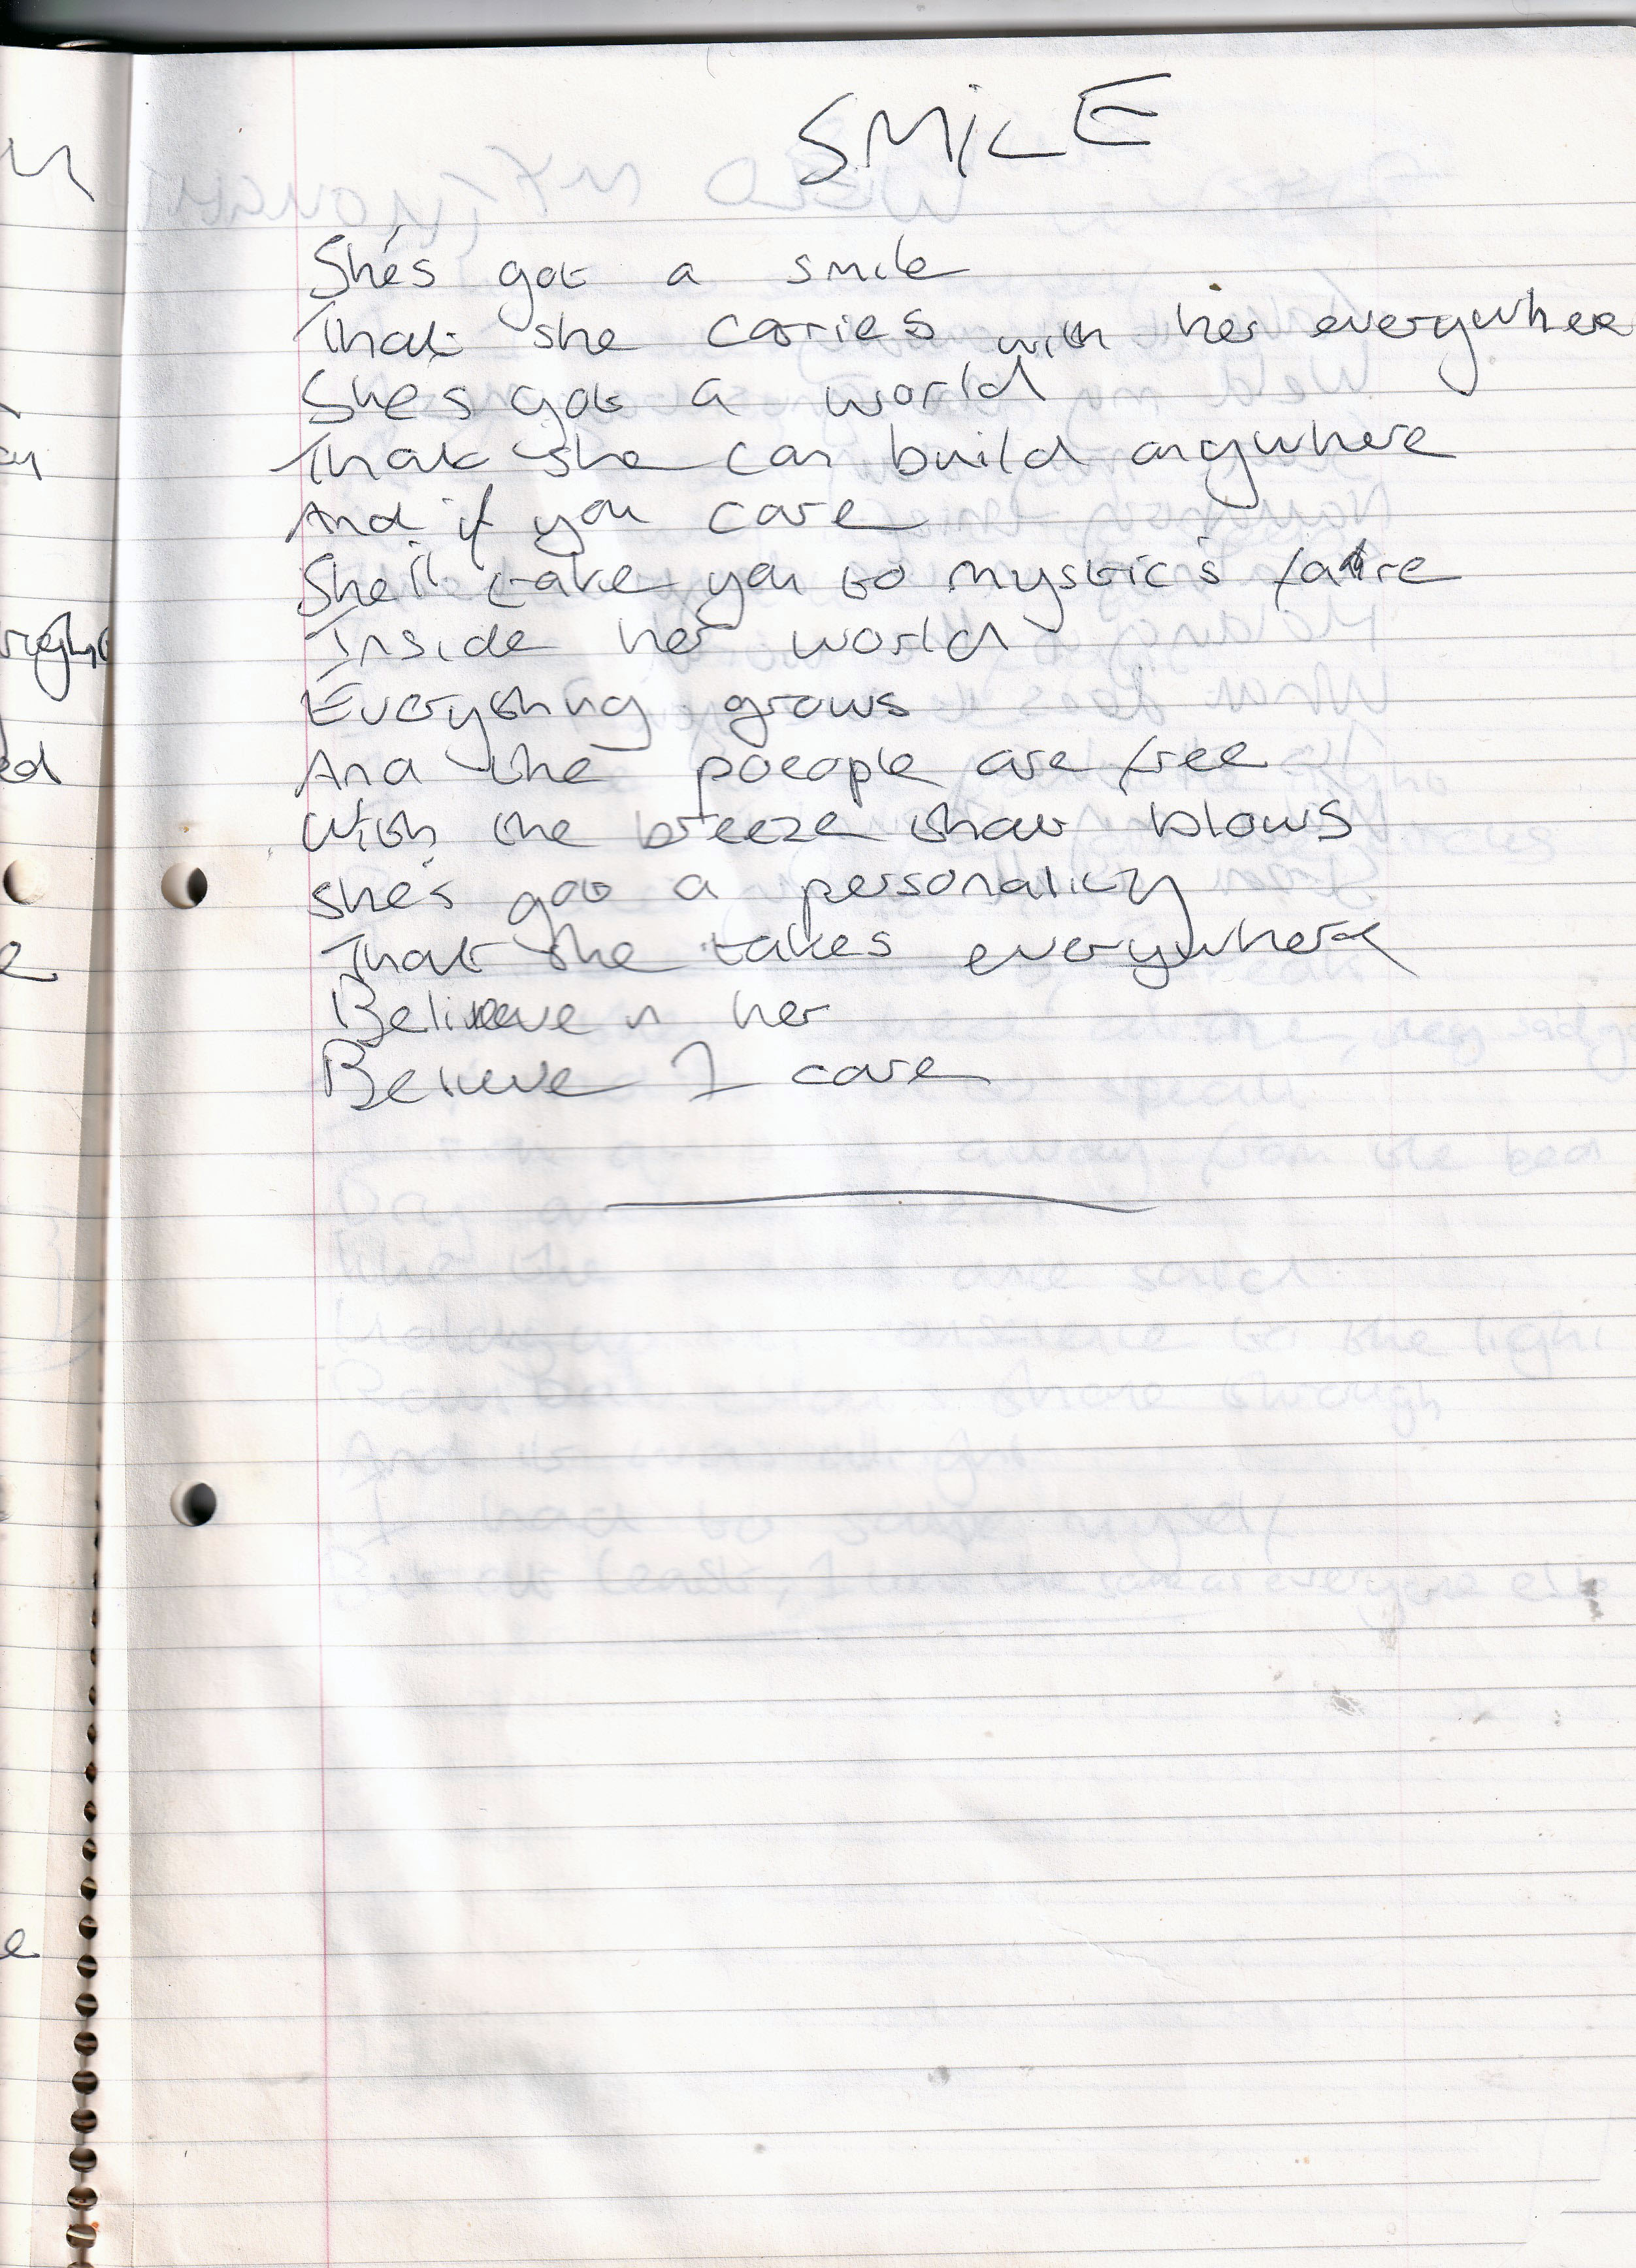 SMILE
She's got a smile
That she carries with her everywhere
She's got a world
That she can build anywhere
And if you care
She'll take you to mystic's faire
Inside her world
Everything grows
And the poeople are free
With the breeze that blows
She's got a personality
That she takes everywhere
Believe in her
Believe I care